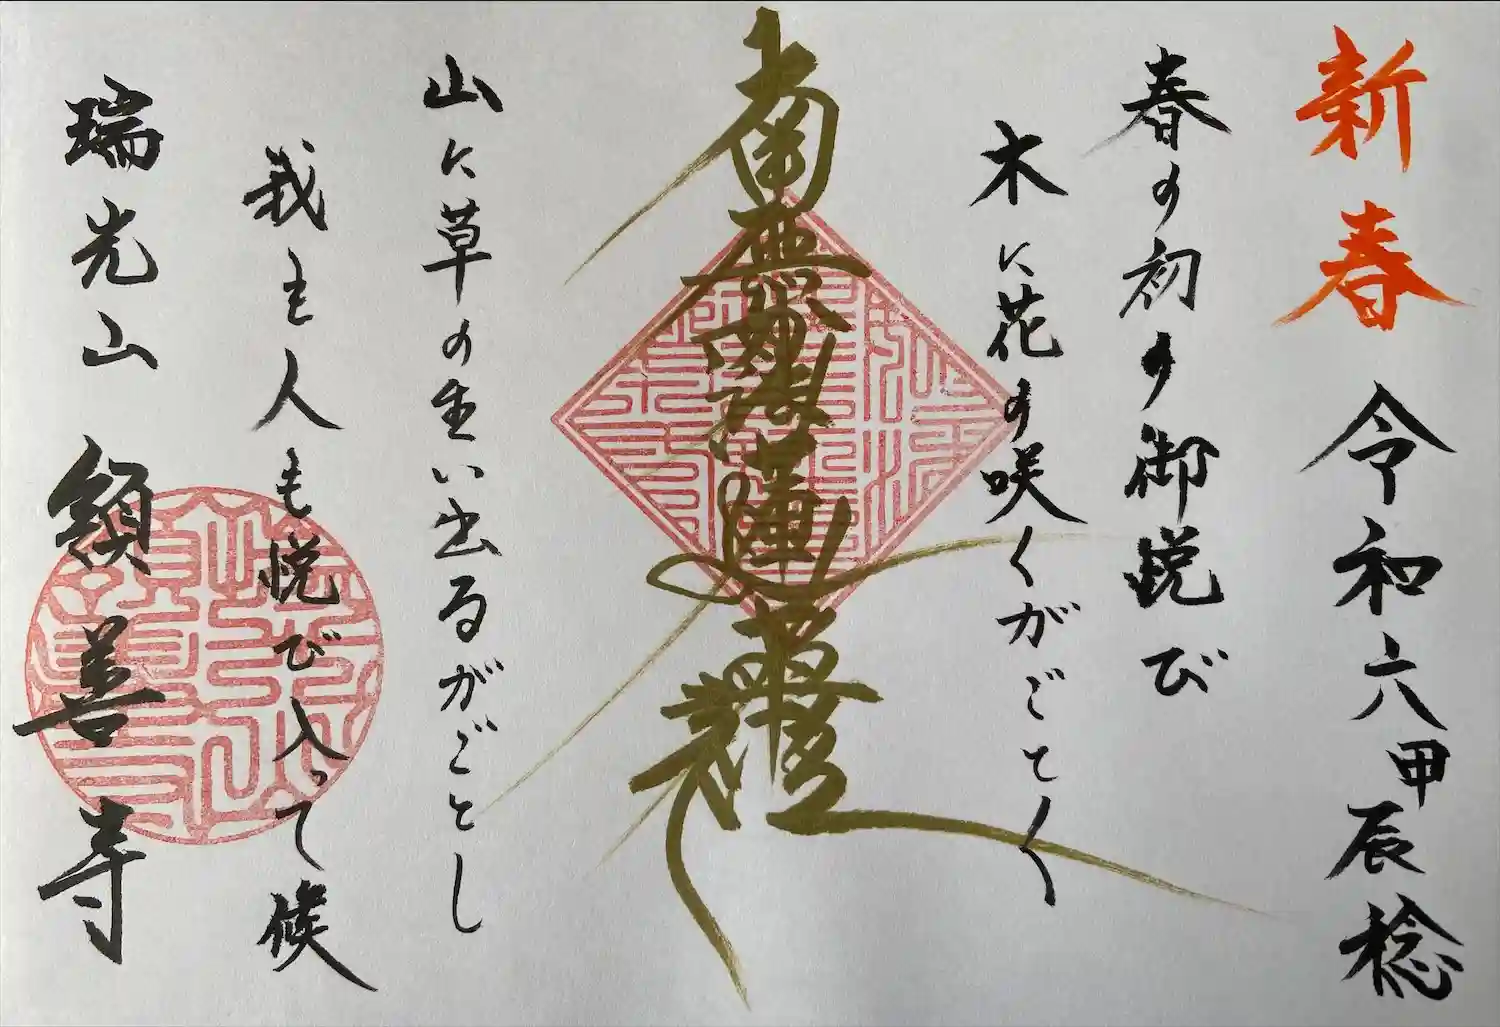 新春 令和六甲辰稔
春の初の御悦び
木に花の咲くがごとく
南無妙法蓮華経
山に草の生い出るがごとし
我も人も悦び入って候
瑞光山 額善寺